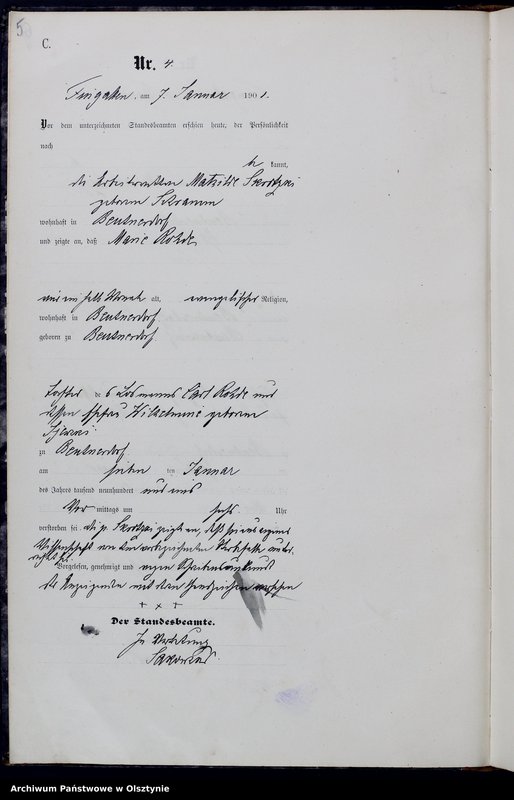 5
C.
Nr. 4.
am 7. Januar 1901.
Vor dem unterzeichneten Standesbeamten erschien heute, der Persönlichkeit
nach
be kannt,
die Arbeiterwittwe Mathilde
geborene Schramm
wohnhaft in Beutnerdorf
und zeigte an, daß Marie Rohde,
ein ein halb Monate alt, evangelischer Religion,
wohnhaft in Beutnerdorf
geboren zu Beutnerdorf
Tochter des Losmanns Carl Rohde und
dessen Ehefrau Wilhelmine geborene
zu Beutnerdorf
am sieben ten Januar
des Jahres tausend neunhundert und eins
Vor mittags um sechs Uhr
verstorben sei. die p. zeigte an, daß sie aus eigener
Wissenschaft von dem vorbezeichneten Sterbefalle unter-
richtet sei.
Vorgelesen, genehmigt und wegen Schreibensunkunde
der Anzeigenden mit deren Handzeichen versehen
+ x +
Der Standesbeamte.
In Vertretung
Archiwum Państwowe w Olsztynie